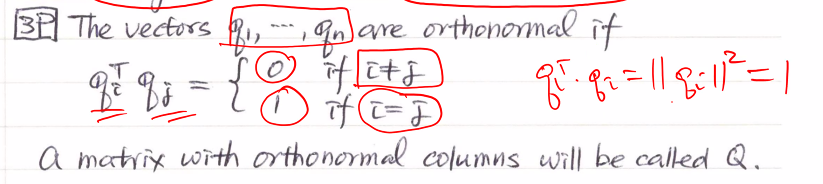 3P The vectors q₁, ..., qₙ are orthonormal if
qᵢᵀ qⱼ = { 0 if i ≠ j
1 if i = j
qᵢᵀ · qᵢ = ||qᵢ||² = 1
A matrix with orthonormal columns will be called Q.